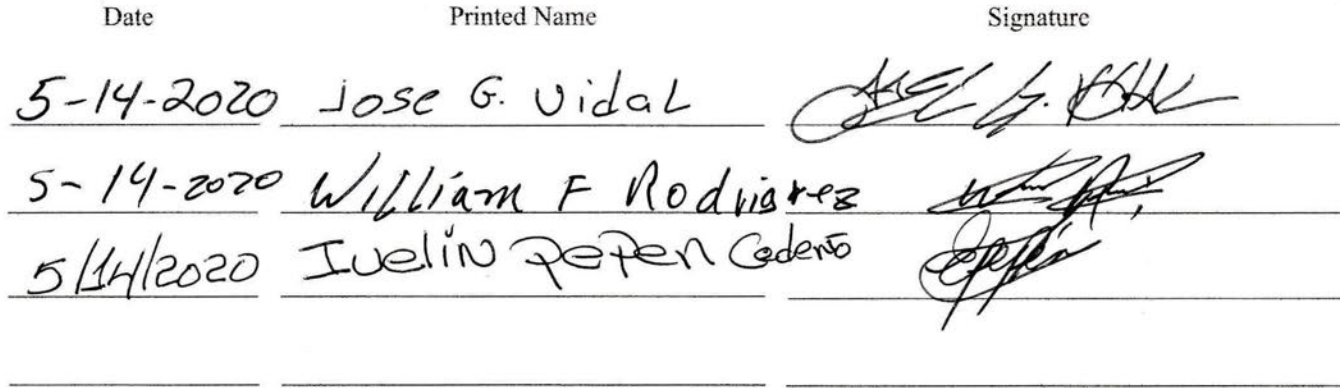 Date Printed Name Signature
5-14-2020 Jose G. Vidal
5-14-2020 William F Rodriguez
5/14/2020 Ivelin Pepen Cedeño